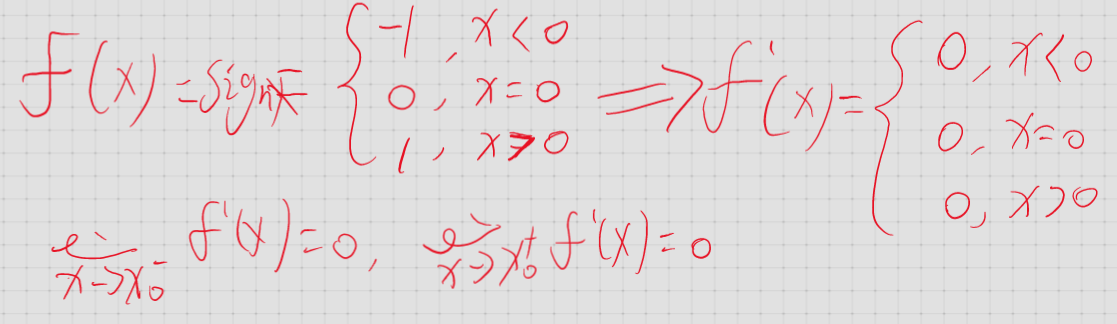 f(x) = sign x = { -1, x < 0 ; 0, x = 0 ; 1, x > 0 ⟹ f'(x) = { 0, x < 0 ; 0, x = 0 ; 0, x > 0
x→x₀⁻ f'(x) = 0, x→x₀⁺ f'(x) = 0